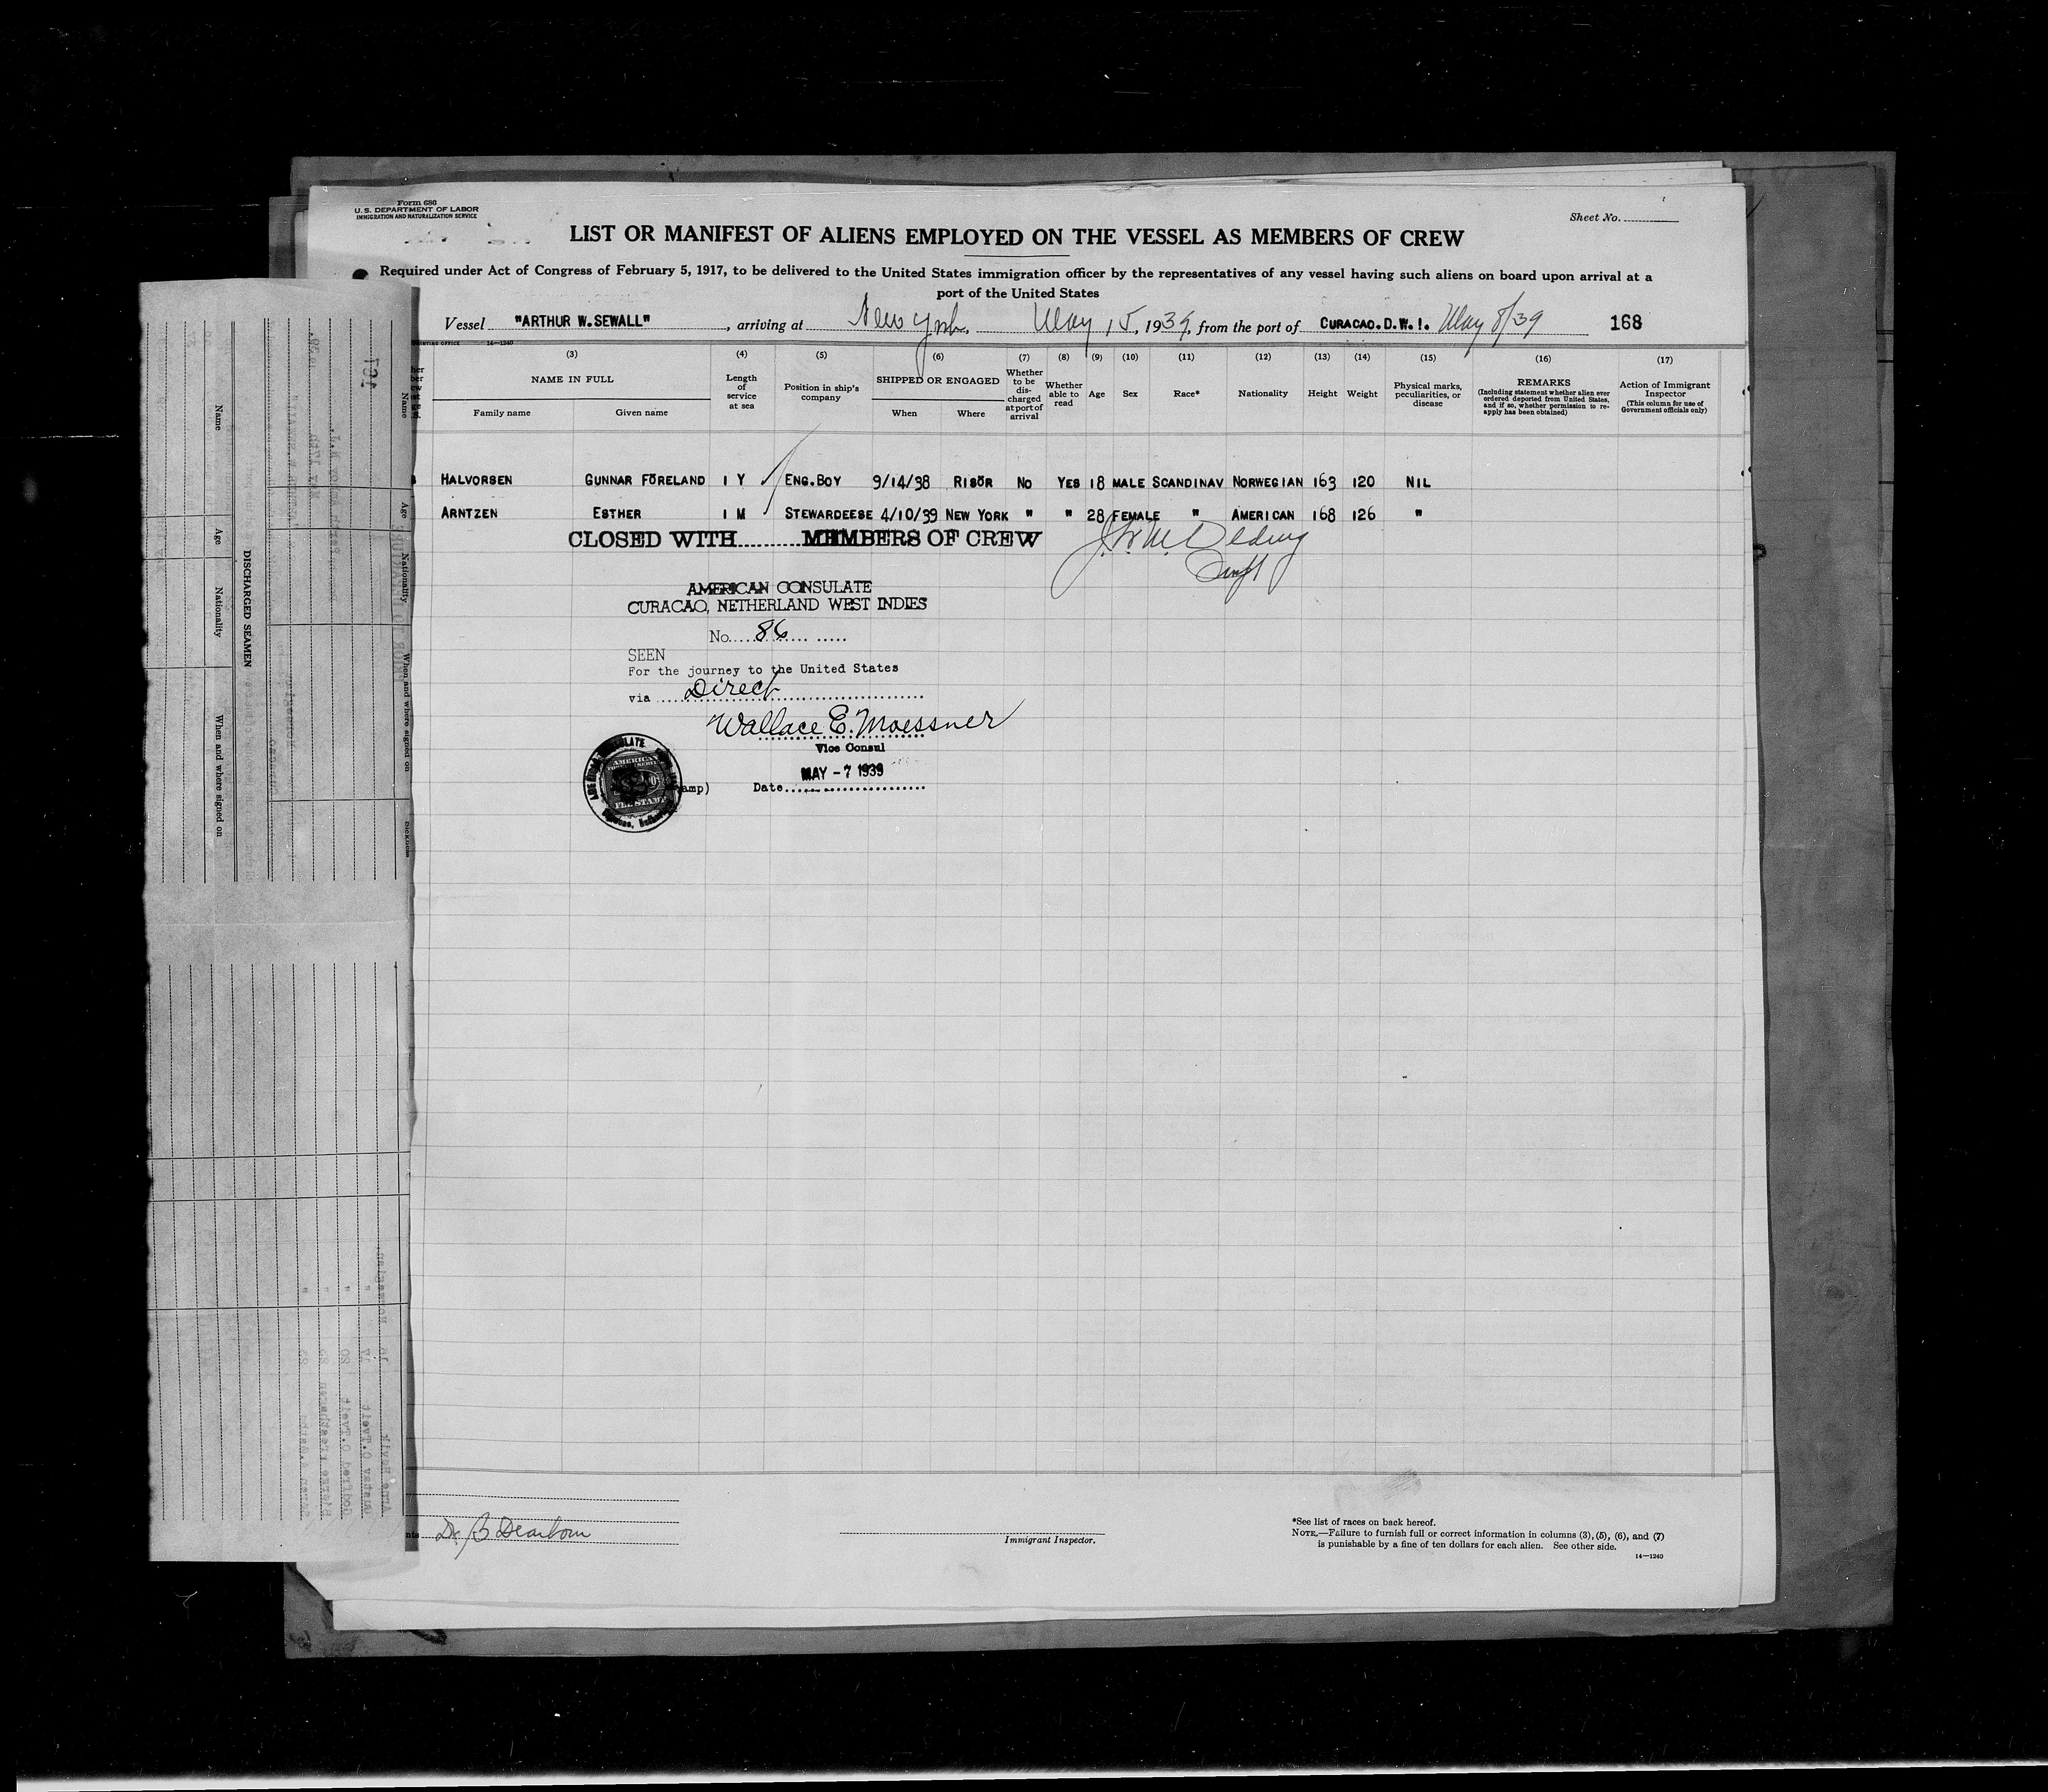 Form 686
U. S. DEPARTMENT OF LABOR
IMMIGRATION AND NATURALIZATION SERVICE
Sheet No.
LIST OR MANIFEST OF ALIENS EMPLOYED ON THE VESSEL AS MEMBERS OF CREW
Required under Act of Congress of February 5, 1917, to be delivered to the United States immigration officer by the representatives of any vessel having such aliens on board upon arrival at a
port of the United States
Vessel "ARTHUR W.SEWALL" , arriving at New York, May 15, 1939, from the port of CURACAO.D.W.I. May 8/39 168
14—1240
(3) (4) (5) (6) (7) (8) (9) (10) (11) (12) (13) (14) (15) (16) (17)
NAME IN FULL
Family name Given name
Length of service at sea
Position in ship's company
SHIPPED OR ENGAGED
When Where
Whether to be discharged at port of arrival
Whether able to read
Age Sex Race* Nationality Height Weight
Physical marks, peculiarities, or disease
REMARKS
(Including statement whether alien ever ordered deported from United States, and if so, whether permission to reapply has been obtained)
Action of Immigrant Inspector
(This column for use of Government officials only)
HALVORSEN GUNNAR FÖRELAND 1 Y ENG.BOY 9/14/38 RISÖR NO YES 18 MALE SCANDINAV NORWEGIAN 163 120 NIL
ARNTZEN ESTHER 1 M STEWARDEESE 4/10/39 NEW YORK " " 28 FEMALE " AMERICAN 168 126 "
CLOSED WITH.........MEMBERS OF CREW
AMERICAN CONSULATE
CURACAO, NETHERLAND WEST INDIES
No. 86
SEEN
For the journey to the United States
via Direct
Wallace E. Moessner
Vice Consul
MAY - 7 1939
Date
AMERICAN
FEE STAMP
Dr B Dearborn
Immigrant Inspector.
*See list of races on back hereof.
NOTE.—Failure to furnish full or correct information in columns (3), (5), (6), and (7)
is punishable by a fine of ten dollars for each alien. See other side.
14—1240
167
Name Age Nationality When and where signed on
DISCHARGED SEAMEN
Name Age Nationality When and where signed on